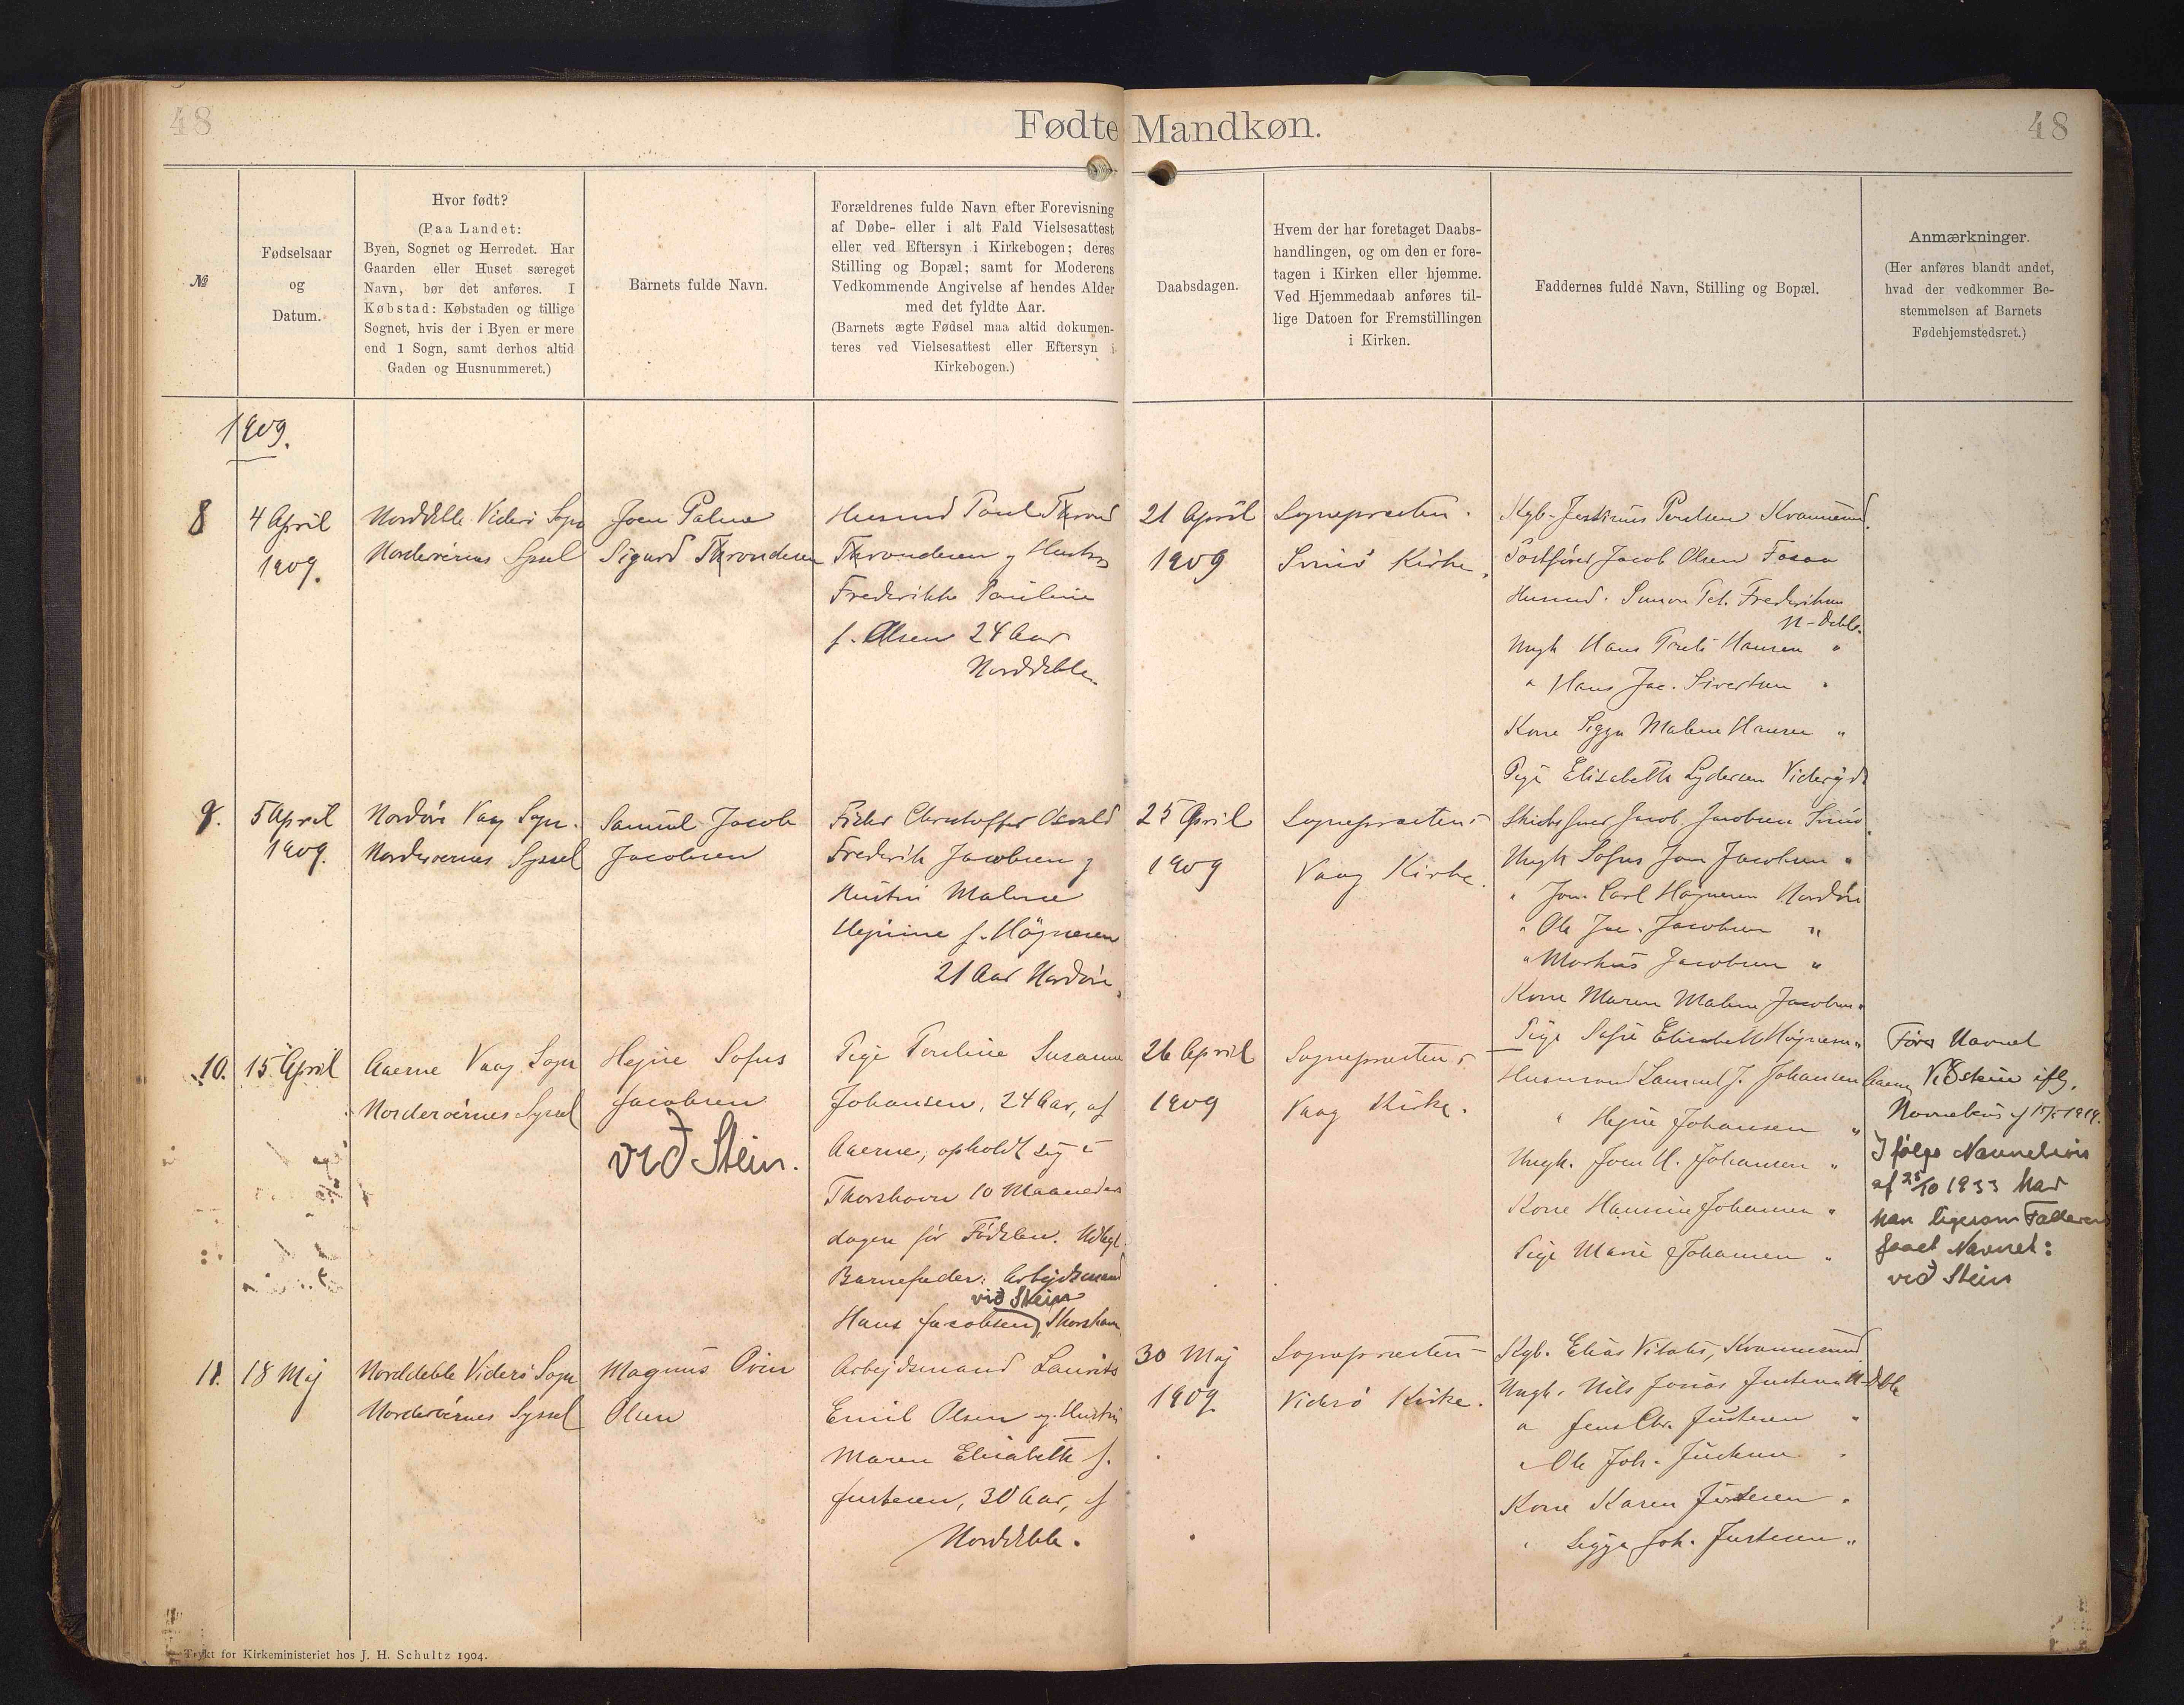 48
Fødte Mandkøn.
48
№
Fødselsaar
og
Datum.
Hvor født?
(Paa Landet:
Byen, Sognet og Herredet. Har
Gaarden eller Huset særeget
Navn, bør det anføres. I
Købstad: Købstaden og tillige
Sognet, hvis der i Byen er mere
end 1 Sogn, samt derhos altid
Gaden og Husnummeret.)
Barnets fulde Navn.
Forældrenes fulde Navn efter Forevisning
af Døbe- eller i alt Fald Vielsesattest
eller ved Eftersyn i Kirkebogen; deres
Stilling og Bopæl; samt for Moderens
Vedkommende Angivelse af hendes Alder
med det fyldte Aar.
(Barnets ægte Fødsel maa altid dokumen-
teres ved Vielsesattest eller Eftersyn i
Kirkebogen.)
Daabsdagen.
Hvem der har foretaget Daabs-
handlingen, og om den er fore-
tagen i Kirken eller hjemme.
Ved Hjemmedaab anføres til-
lige Datoen for Fremstillingen
i Kirken.
Faddernes fulde Navn, Stilling og Bopæl.
Anmærkninger.
(Her anføres blandt andet,
hvad der vedkommer Be-
stemmelsen af Barnets
Fødehjemstedsret.)
1909.
8
4 April
1909.
Norddeble Viderø Sogn
Norderøernes Syssel
Joen Palme
Sigurd Throndesen
Husmd Poul Thrond
Throndesen og Hustru
Frederikke Pauline
f. Olsen 24 Aar
Norddeble
21 April
1909
Sognepræsten.
Svinø Kirke.
Kgb. Poulsen Kvannesund.
Jacob Olsen Fossaa
Husmd. Frederiksen
N-Deble
Ungk Hans Hansen "
" Hans Jac. Sivertsen "
Kone Sigga Malene Hansen "
Pige Elisabeth Lydersen Viderejde
9.
5 April
1909.
Nordøre Vaag Sogn.
Norderøernes Syssel
Samuel Jacob
Jacobsen
Fisker Christoffer Osvald
Frederik Jacobsen og
Hustru Malene
Hejnine f. Högnesen
21 Aar Nordøre.
25 April
1909
Sognepræsten i
Vaag Kirke.
Jacob Jacobsen Svinø
Ungk Sofus Joen Jacobsen "
" Joen Carl Högnesen Nordøre
" Ole Jac. Jacobsen "
" Markus Jacobsen "
Kone Maren Malene Jacobsen "
Pige Sofie Elisabeth Högnesen "
10.
15 April
Aaerne Vaag Sogn
Norderøernes Syssel
Hejne Sofus
Jacobsen
við Stein.
Pige Pouline Susanne
Johansen, 24 Aar, af
Aaerne, opholdt sig i
Thorshavn 10 Maaneders
dagen før Fødslen. Udlagt
Barnefader: Arbejdsmand
við Stein
Hans Jacobsen, Thorshavn
26 April
1909
Sognepræsten i
Vaag Kirke.
Husmand Samuel J. Johansen Aaerne
" Hejne Johansen "
Ungk. Joen H. Johansen "
Kone Johansen "
Pige Marie Johansen "
Fører Navnet
Viðstein iflg.
Navnebevis af
Ifølge Navnebevis
af 25/10 1933 har
han ligesom Faderen
faaet Navnet:
við Stein
11.
18 Maj
Norddeble Viderø Sogn
Norderøernes Syssel
Magnus
Olsen
Arbejdsmand Laurits
Emil Olsen og Hustru
Maren Elisabeth f.
Justesen, 30 Aar, af
Norddeble.
30 Maj
1909
Sognepræsten i
Viderø Kirke.
Kgb. Elias Vitalis, Kvannesund
Ungk. Nils Jonas Justesen N-Deble
" Jens Chr. Justesen "
" Ole Joh. Justesen "
Kone Karen Justesen "
" Sigga Joh. Justesen "
Trykt for Kirkeministeriet hos J. H. Schultz 1904.